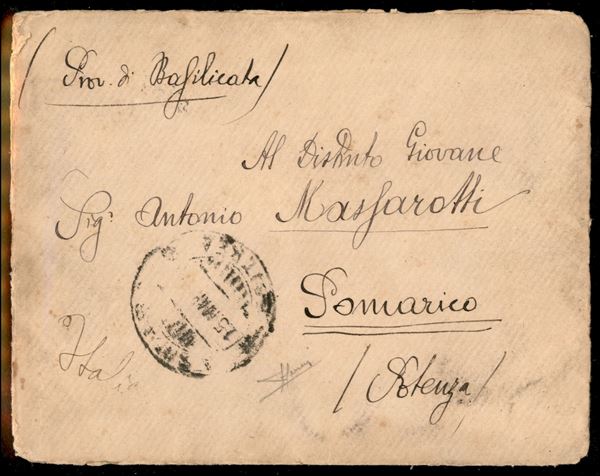 (Prov. di Basilicata)
Al Distinto Giovane
Sig.r Antonio Massarotti
Pomarico
Italia
(Potenza)